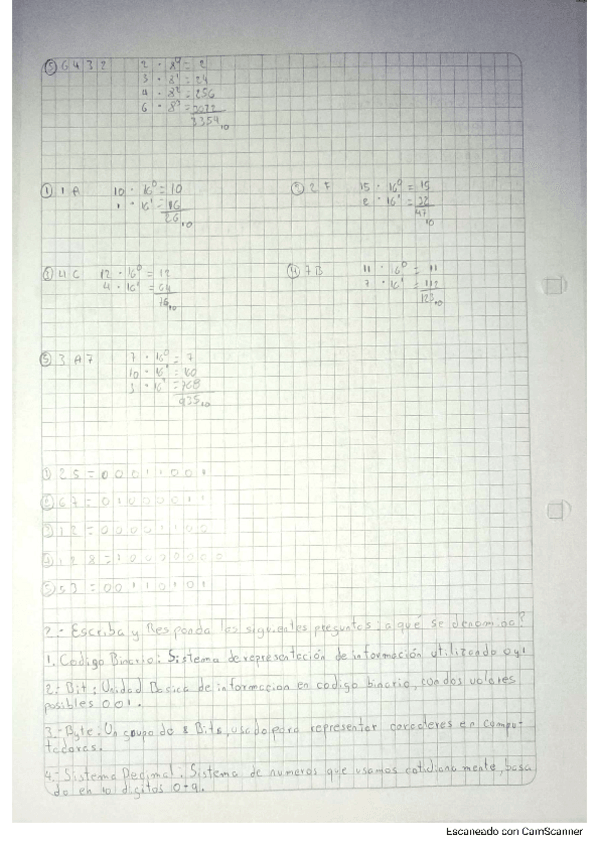 ⑤ 6 4 3 2 2 · 8⁰ = 2
3 · 8¹ = 24
4 · 8² = 256
6 · 8³ = 3072
3354₁₀
① 1 A 10 · 16⁰ = 10 ② 2 F 15 · 16⁰ = 15
1 · 16¹ = 16 2 · 16¹ = 32
26₁₀ 47₁₀
③ 4 C 12 · 16⁰ = 12 ④ 7 B 11 · 16⁰ = 11
4 · 16¹ = 64 7 · 16¹ = 112
76₁₀ 123₁₀
⑤ 3 A 7 7 · 16⁰ = 7
10 · 16¹ = 160
3 · 16² = 768
935₁₀
① 25 = 0 0 0 1 1 0 0 1
② 67 = 0 1 0 0 0 0 1 1
③ 12 = 0 0 0 0 1 1 0 0
④ 128 = 1 0 0 0 0 0 0 0
⑤ 53 = 0 0 1 1 0 1 0 1
2.- Escriba y Responda las siguientes preguntas: a qué se denomina?
1. Codigo Binario: Sistema de representación de información utilizando 0 y 1
2.- Bit: Unidad Basica de informacion en codigo binario, con dos valores
posibles 0 o 1.
3.- Byte: Un grupo de 8 Bits, usado para representar caracteres en compu-
tadores.
4.- Sistema Decimal: Sistema de numeros que usamos cotidianamente, basa
do en 10 digitos 0-9.
Escaneado con CamScanner